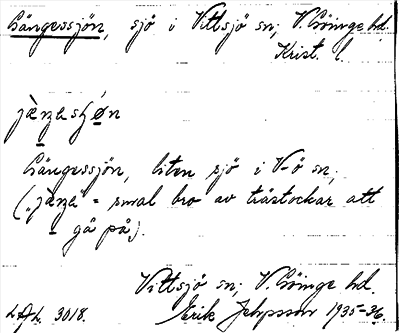 Gängessjön, sjö i Vittsjö sn; V. Göinge hd.
Krist. l.
jæ̀ŋasjø̀n
Gängessjön, liten sjö i V-ö sn,
("jæ̀ŋa" = smal bro av trästockar att
gå på).
Vittsjö sn; V. Göinge hd.
L.A.L. 3018. Erik Jeppsson 1935-36.